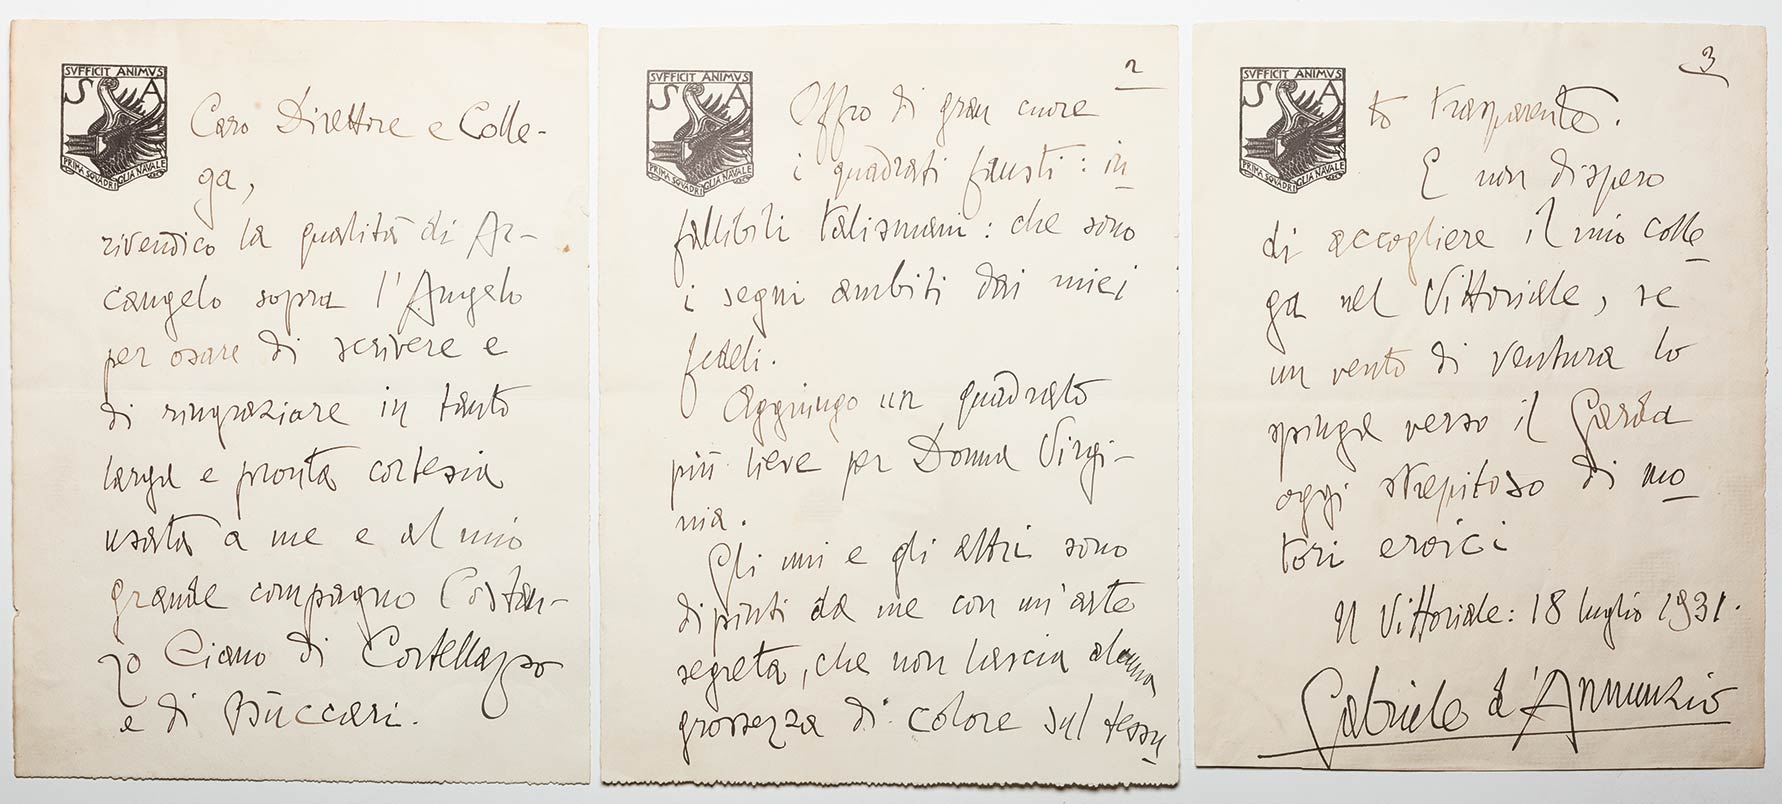 SVFFICIT ANIMVS
S A
PRIMA SQVADRIGLIA NAVALE
Caro Direttore e Colle-
ga,
rivendico la qualità di Ar-
cangelo sopra l'Angelo
per osare di scrivere e
di ringraziare in tanto
larga e pronta cortesia
usata a me e al mio
grande compagno Costan-
zo Ciano di Cortellazzo
e di Bùccari.
SVFFICIT ANIMVS
S A
PRIMA SQVADRIGLIA NAVALE
2
Offro di gran cuore
i quadrati fausti: in
fallibili talismani: che sono
i segni ambiti dai miei
fedeli.
Aggiungo un quadrato
più lieve per Donna Virgi-
nia.
Gli uni e gli altri sono
dipinti da me con un'arte
segreta, che non lascia alcuna
grossezza di colore sul tessu
SVFFICIT ANIMVS
S A
PRIMA SQVADRIGLIA NAVALE
3
to trasparente.
E non dispero
di accogliere il mio colle
ga nel Vittoriale, se
un vento di ventura lo
spinga verso il Garda
oggi strepitoso di mo
tori eroici
Il Vittoriale: 18 luglio 1931.
Gabriele d'Annunzio